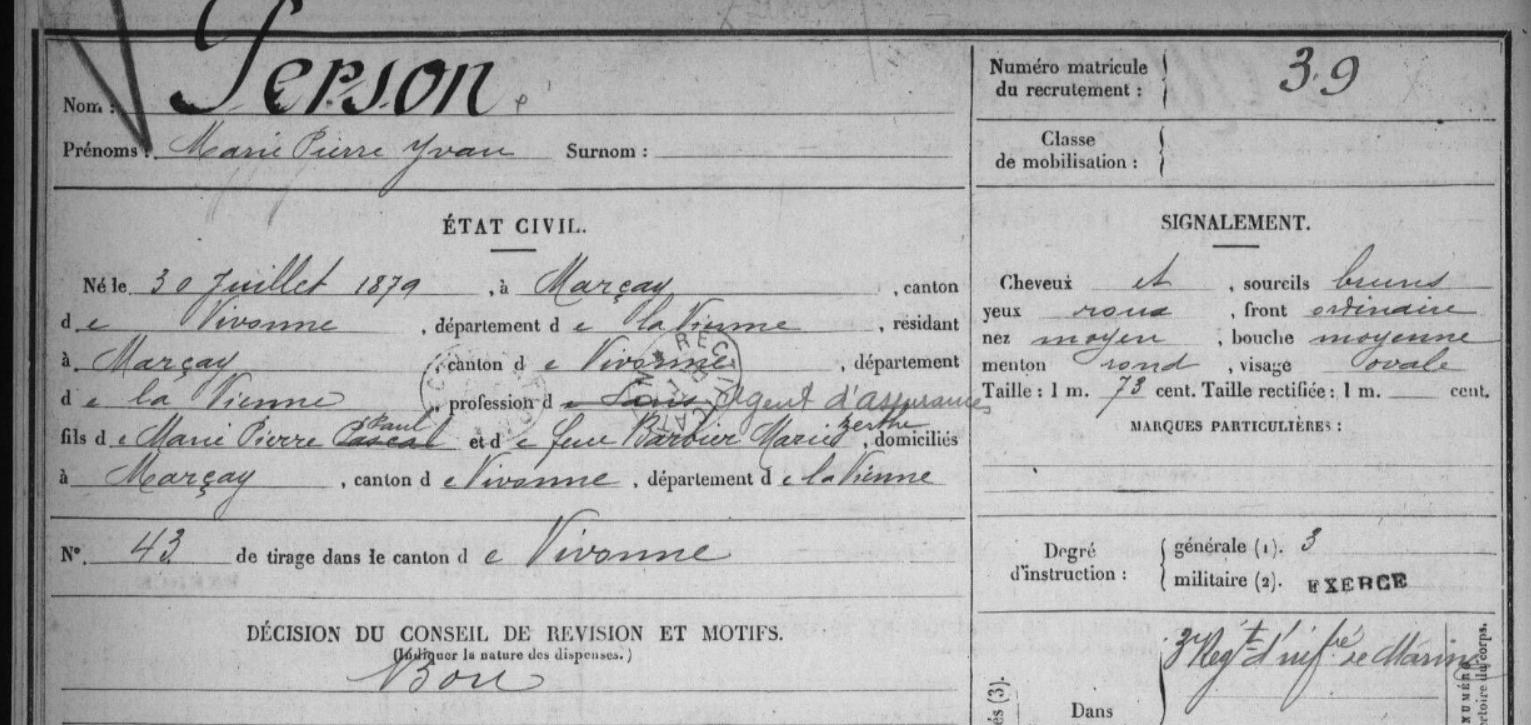 Nom : Person
Numéro matricule du recrutement : 39
Prénoms : Marie Pierre Yvan Surnom :
Classe de mobilisation :
ÉTAT CIVIL.
Né le 30 Juillet 1879, à Marçay, canton
de Vivonne, département de la Vienne, résidant
à Marçay, canton de Vivonne, département
de la Vienne, profession de Sans Agent d'assurances
fils de Marie Pierre Pascal Paul et de feue Barbier Marie Berthe, domiciliés
à Marçay, canton de Vivonne, département de la Vienne
N° 43 de tirage dans le canton de Vivonne
DÉCISION DU CONSEIL DE REVISION ET MOTIFS.
(Indiquer la nature des dispenses.)
Bon
SIGNALEMENT.
Cheveux et, sourcils bruns
yeux roux, front ordinaire
nez moyen, bouche moyenne
menton rond, visage ovale
Taille : 1 m. 73 cent. Taille rectifiée : 1 m. cent.
MARQUES PARTICULIÈRES :
Degré d'instruction :
générale (1). 3
militaire (2). EXERCÉ
3e Regt d'infie de Marine
Dans
és (3).
NUMÉRO
rtoire du corps.